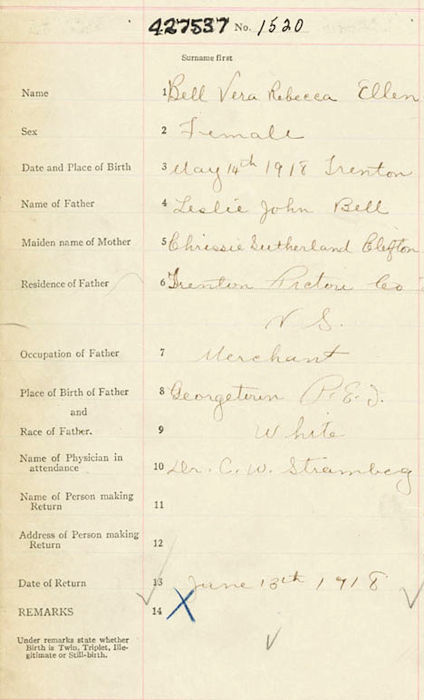 427537 No. 1520
Surname first
Name 1 Bell Vera Rebecca Ellen
Sex 2 Female
Date and Place of Birth 3 May 14th 1918 Trenton
Name of Father 4 Leslie John Bell
Maiden name of Mother 5 Chrissie Sutherland Clifton
Residence of Father 6 Trenton Pictou Co
N S.
Occupation of Father 7 Merchant
Place of Birth of Father 8 Georgetown P.E.I.
and
Race of Father. 9 White
Name of Physician in
attendance 10 Dr. C. W. Stramberg
Name of Person making
Return 11
Address of Person making
Return 12
Date of Return 13 June 13th 1918
REMARKS 14
Under remarks state whether
Birth is Twin, Triplet, Ille-
gitimate or Still-birth.